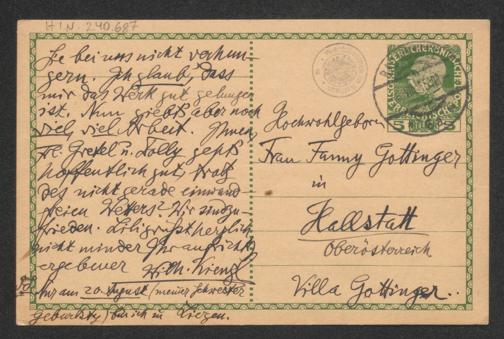 H.I.N. 240.687
Sie bei uns nicht verhun-
gern. Ich glaub, dass
mir das Werk gut gelungen
ist. Nun giebts aber noch
viel, viel Arbeit. Ihnen,
Fr. Gretel u. Lolly gehts
hoffentlich gut, trotz
des nicht gerade einwand-
freien Wetters? Wir sind zu-
frieden. Lili grüsst herzlich
nicht minder Ihr aufrichtig
ergebener Wilh. Kienzl
Nur am 20. August (meiner Schwester
Geburtstg) bin ich in Liezen.
5 5
Hochwohlgeboren
Frau Fanny Gottinger
in
Hallstatt
Oberösterreich
Villa Gottinger.